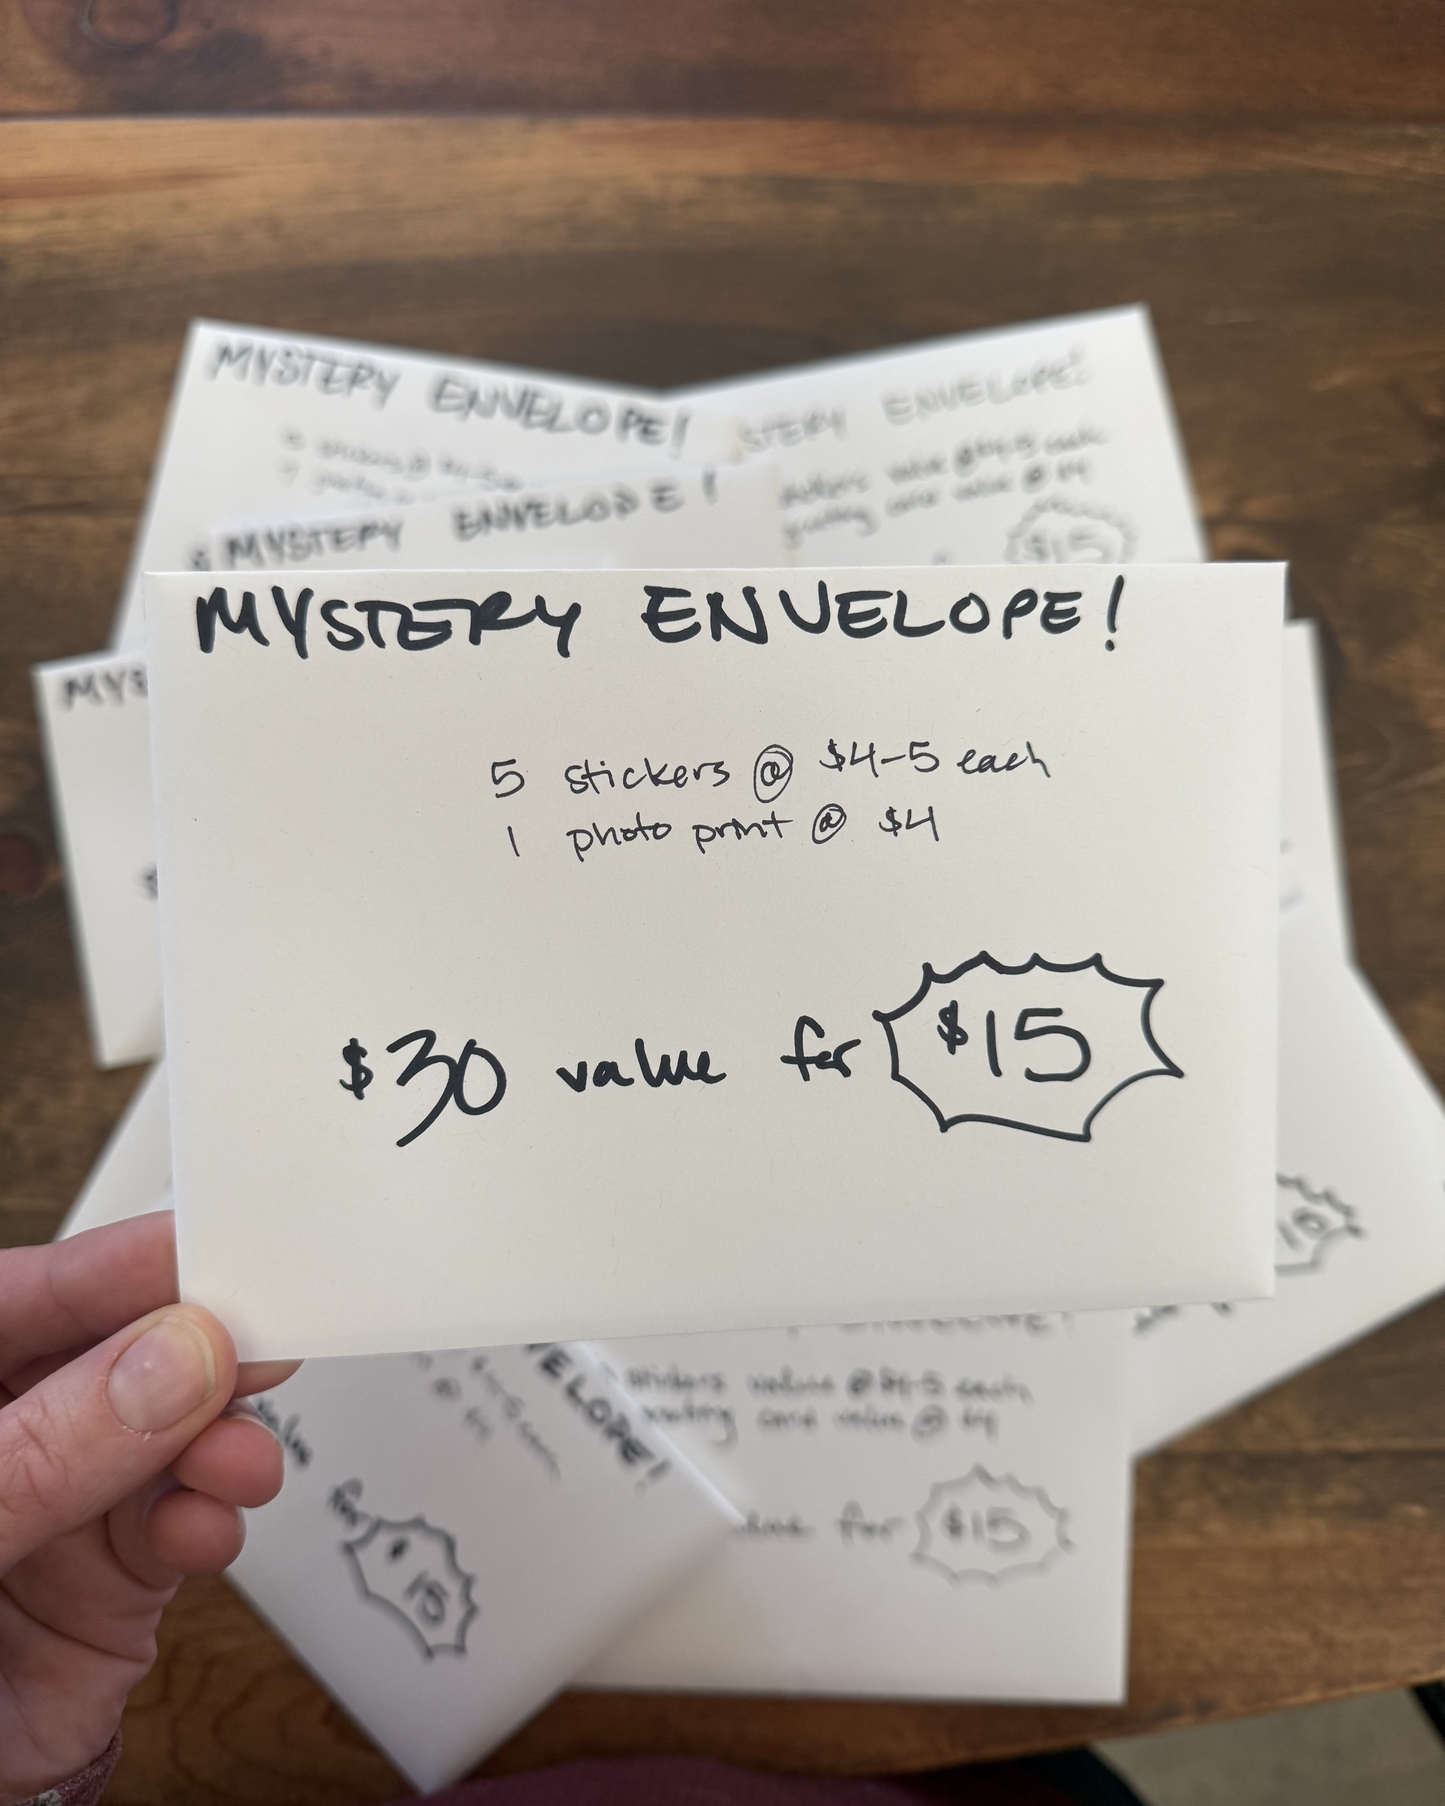 MYSTERY ENVELOPE!
STERY ENVELOPE!
stickers value @ $4-5 each
greeting card value @ $4
$15
MYSTERY ENVELOPE!
MYS
MYSTERY ENVELOPE!
5 stickers @ $4-5 each
1 photo print @ $4
$30 value for $15
10
ENVELOPE!
VELOPE!
stickers value @ $4-5 each
card value @ $4
value for $15